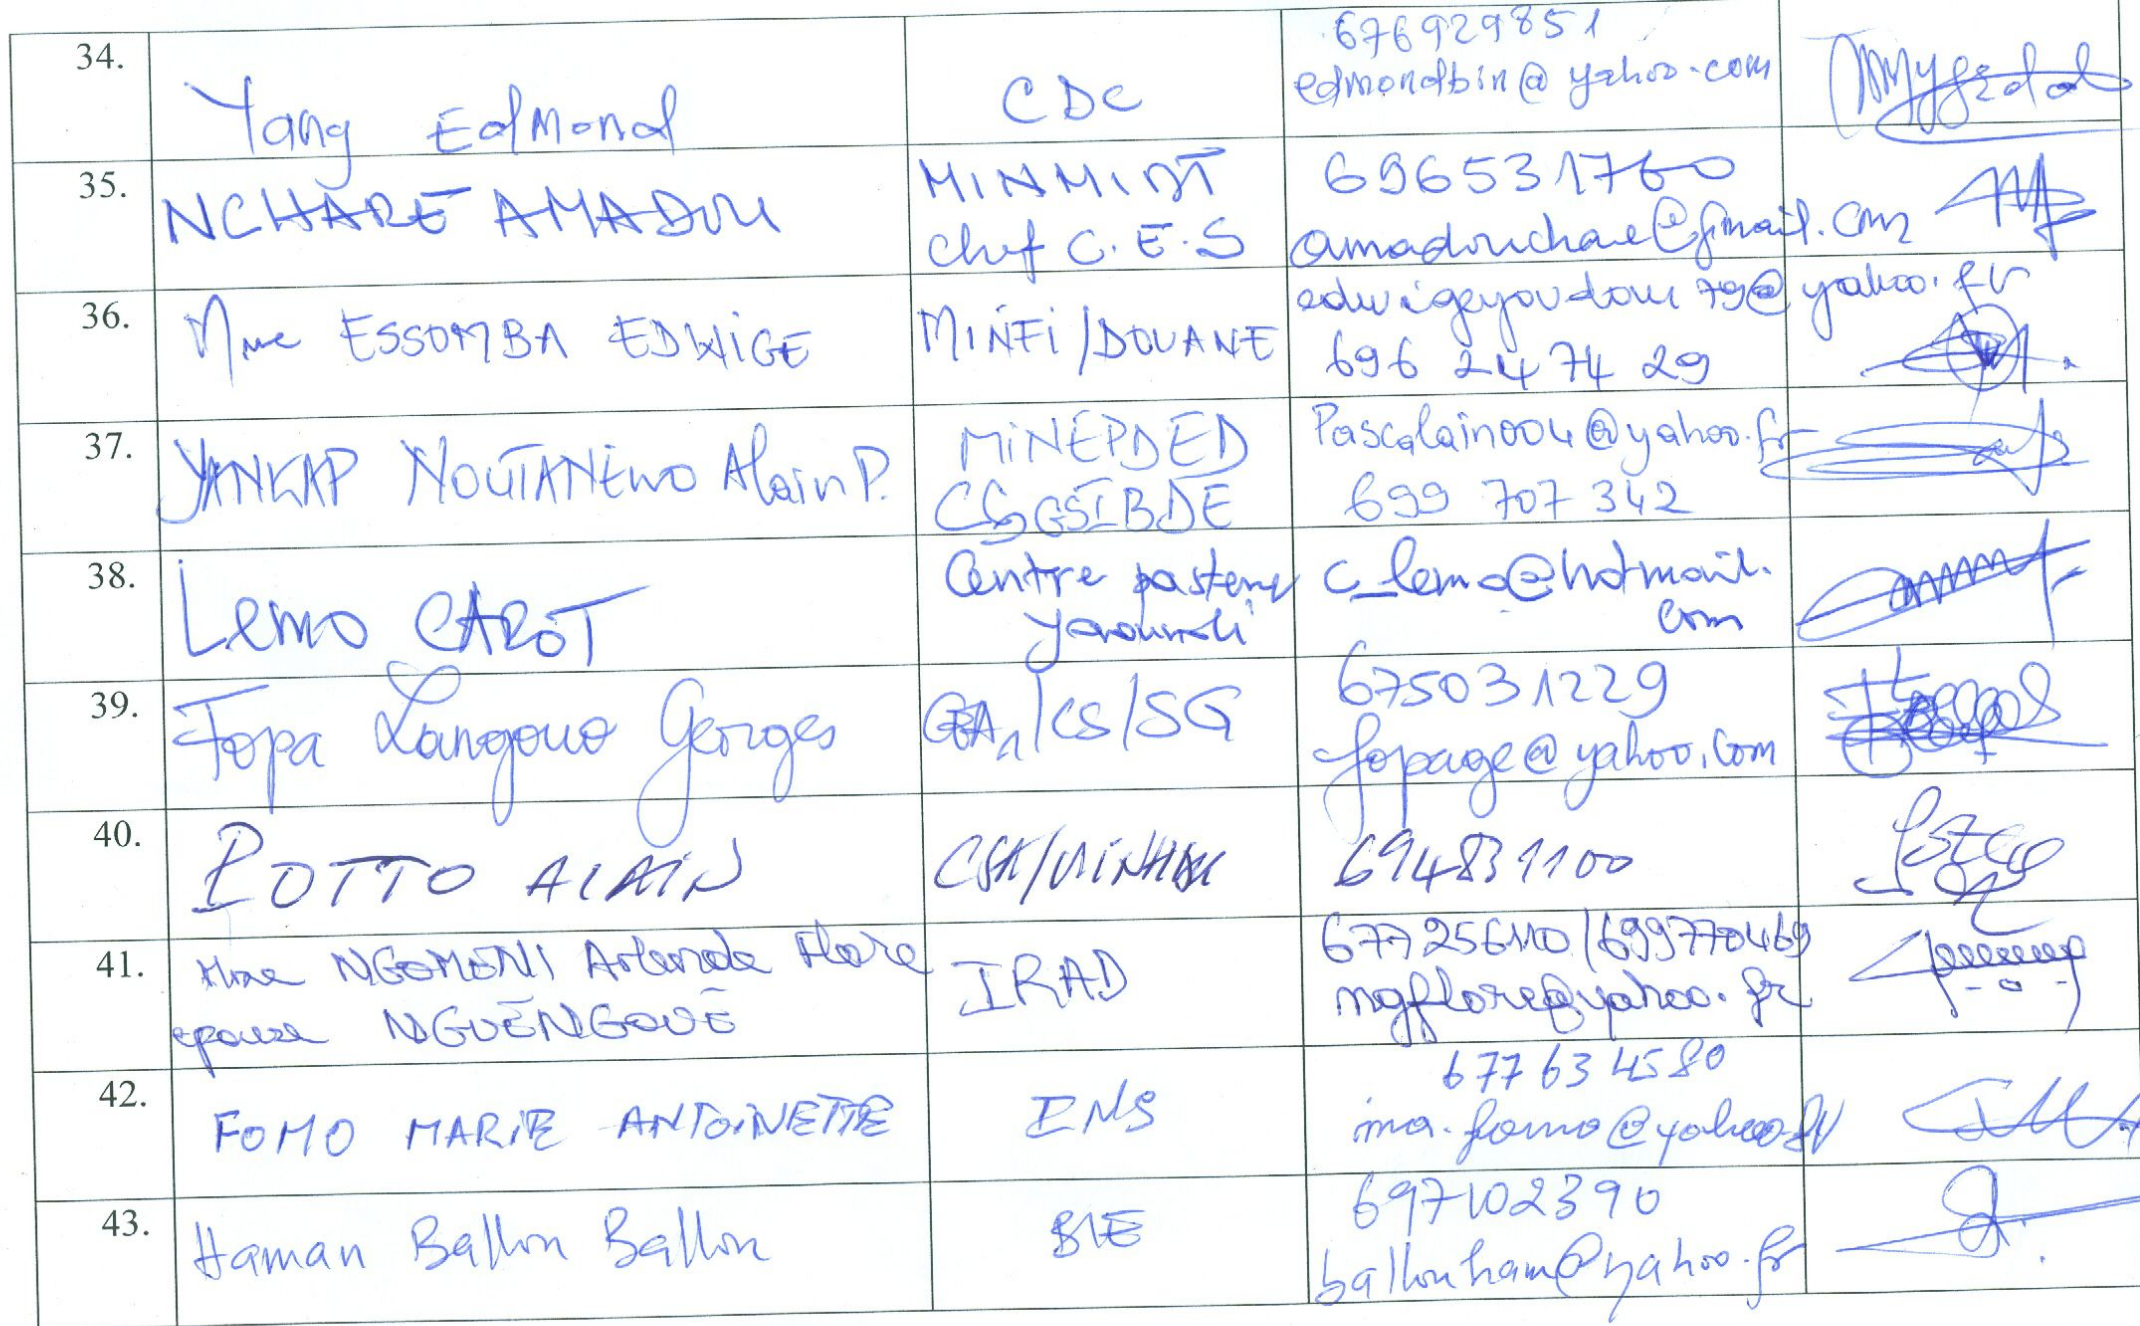 34.
Yang Edmond
CDC
676929851
edmondbin@yahoo.com
35.
NCHARE AMADOU
MINMIDT
Chef C.E.S
696531760
amadouchare@gmail.com
36.
Mme ESSOMBA EDWIGE
MINFI/DOUANE
edwigeyoudom79@yahoo.fr
696 24 74 29
37.
YANKAP NOUTANEWO Alain P.
MINEPDED
Pascalain004@yahoo.fr
699 707 342
38.
Lemo CAROT
Centre pasteur
Yaoundé
c_lemo@hotmail.
com
39.
Fopa Langouo Georges
/CS/SG
675031229
fopage@yahoo.com
40.
POTTO ALAIN
694831100
41.
Mme NGOMENI Arlende Flore
epouse NGUÉNGOUÉ
IRAD
677256110/699770469
ngflore@yahoo.fr
42.
FOMO MARIE ANTOINETTE
INS
677634580
ma.fomo@yahoo.fr
43.
Haman Ballon Ballon
BIE
697102390
ballonham@yahoo.fr